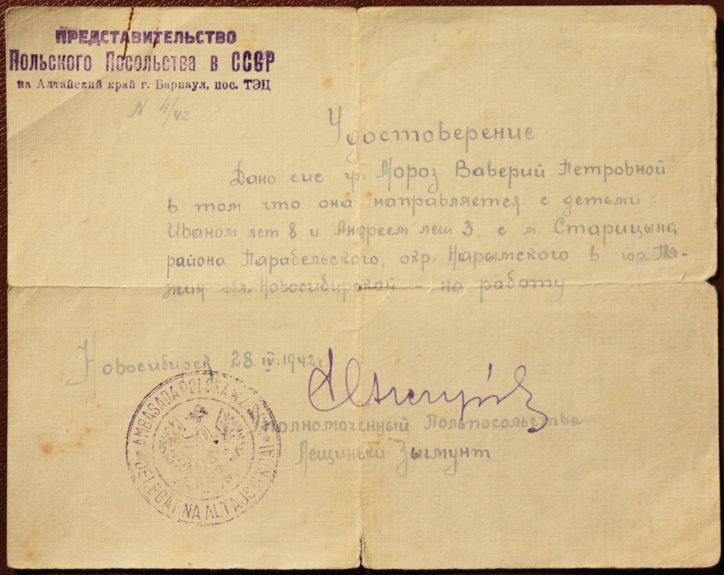 ПРЕДСТАВИТЕЛЬСТВО
Польского Посольства в СССР
на Алтайский край г. Барнаул, пос. ТЭЦ
N 4/42.
Удостоверение
Дано сие гр. Мороз Ваверий Петровной
в том что она направляется с детьми:
Иваном лет 8 и Андреем лет 3, с м. Старицына
района Парабельского, окр. Нарымского в гор. Тя-
жин обл. Новосибирской - на работу
Новосибирск 28.IV.1942г.
Уполномоченный Польпосольства
Лещински Зыгмунт
AMBASADA POLSKA W
DELEGAT NA AŁTAJSKI KRAJ